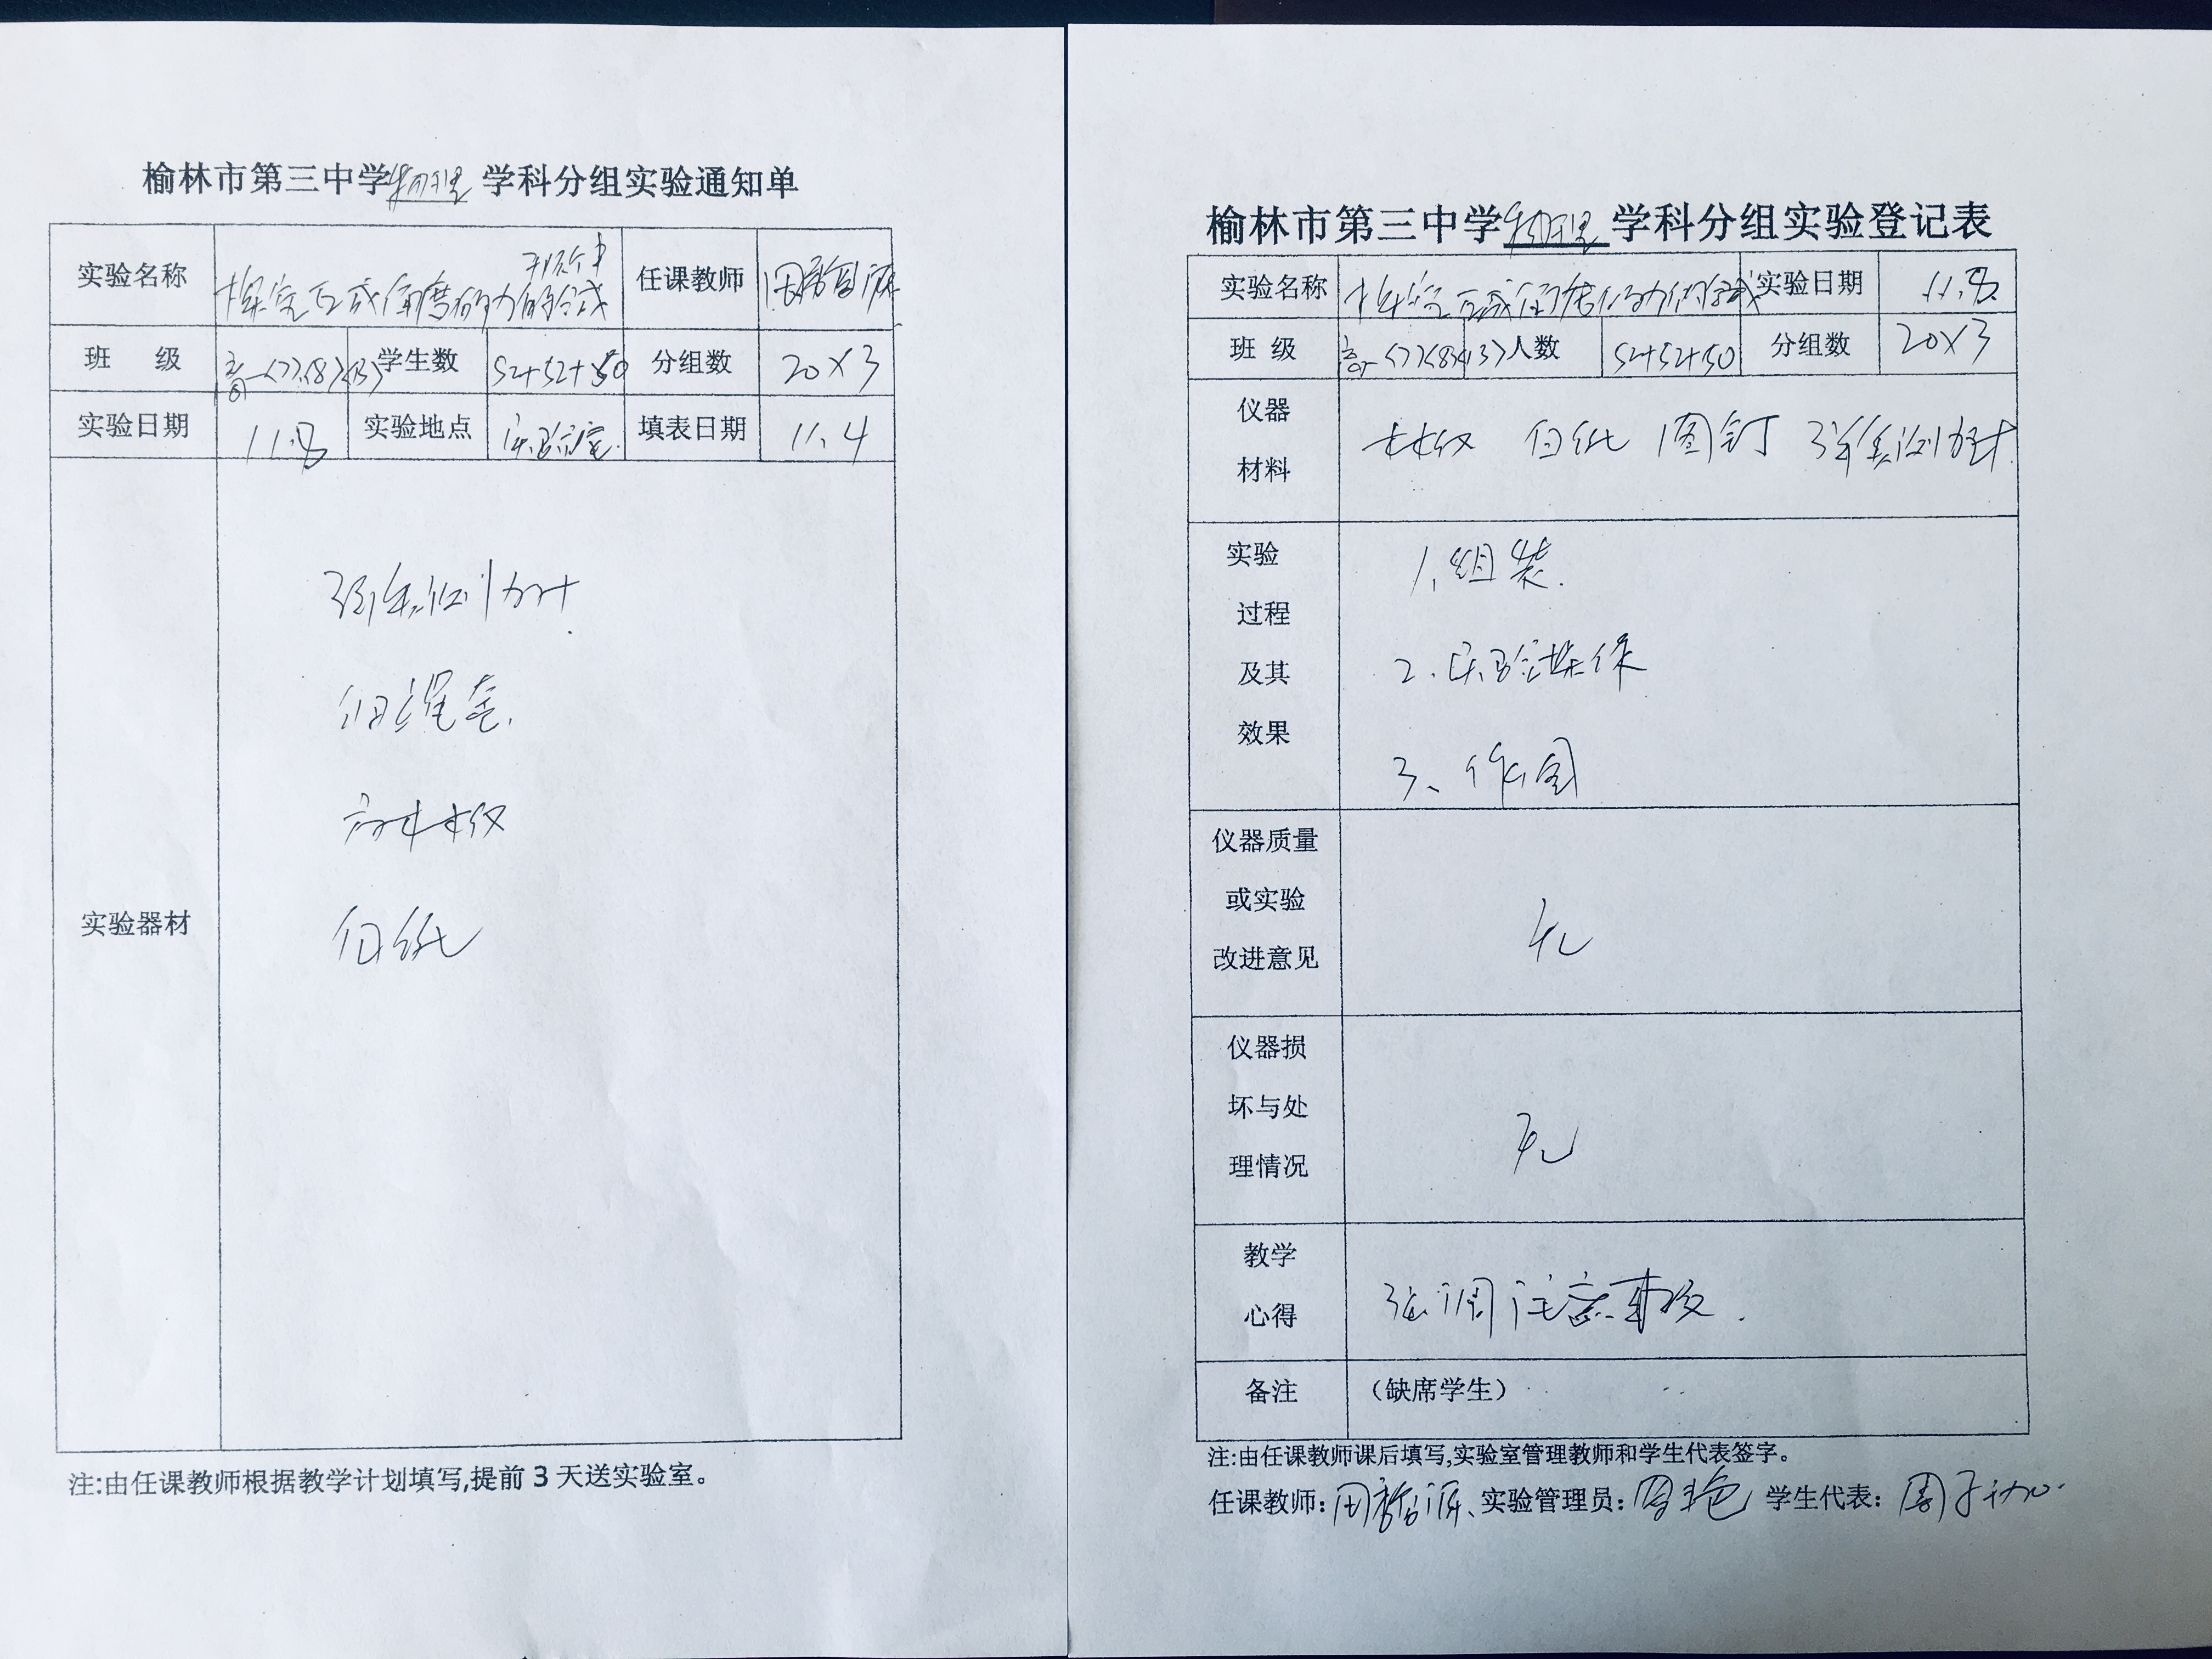 榆林市第三中学物理学科分组实验通知单
实验名称 探究互成角度的力的合成 任课教师
班 级 高一(7)(8)(13) 学生数 52+52+50 分组数 20×3
实验日期 11.8 实验地点 实验室 填表日期 11.4
实验器材
弹簧测力计
细绳套
方木板
白纸
注:由任课教师根据教学计划填写,提前3天送实验室。
榆林市第三中学物理学科分组实验登记表
实验名称 探究互成角度的力的合成 实验日期 11.8
班 级 高一(7)(8)(13) 人数 52+52+50 分组数 20×3
仪器
材料
木板 白纸 图钉 弹簧测力计
实验
过程
及其
效果
1、组装.
2.实验操作
3、作图
仪器质量
或实验
改进意见
无
仪器损
坏与处
理情况
无
教学
心得
强调注意事项.
备注 (缺席学生)
注:由任课教师课后填写,实验室管理教师和学生代表签字。
任课教师: 实验管理员: 学生代表: